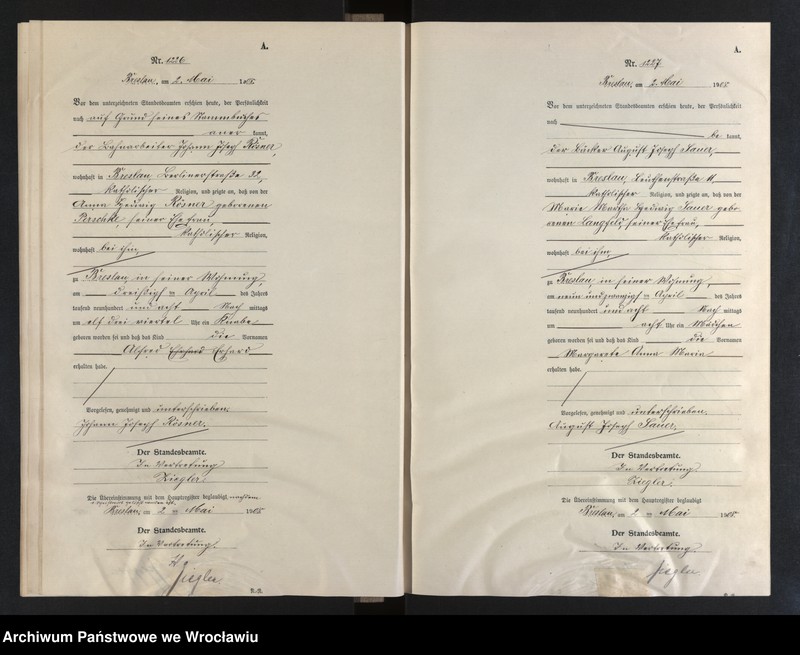 A.
Nr. 1226
Breslau, am 2. Mai 1908.
Vor dem unterzeichneten Standesbeamten erschien heute, der Persönlichkeit
nach auf Grund seines Stammbuches
aner kannt,
der Bahnarbeiter Johann Joseph Rösner,
wohnhaft in Breslau, Berlinerstraße 22,
katholischer Religion, und zeigte an, daß von der
Anna Hedwig Rösner geborenen
seiner Ehefrau,
katholischer Religion,
wohnhaft bei ihm,
zu Breslau in seiner Wohnung,
am dreißigsten April des Jahres
tausend neunhundert und acht Nach mittags
um elf drei viertel Uhr ein Knabe
geboren worden sei und daß das Kind die Vornamen
Alfred Erhard
erhalten habe.
Vorgelesen, genehmigt und unterschrieben.
Johann Joseph Rösner.
Der Standesbeamte.
In Vertretung
Ziegler.
Die Übereinstimmung mit dem Hauptregister beglaubigt, nachdem
Breslau, am 2. Mai 1908.
Der Standesbeamte.
In Vertretung.
Ziegler
A.
Nr. 1227.
Breslau, am 2. Mai 1908.
Vor dem unterzeichneten Standesbeamten erschien heute, der Persönlichkeit
nach
be kannt,
der Bäcker August Joseph Sauer,
wohnhaft in Breslau, Leuthenstraße 11,
katholischer Religion, und zeigte an, daß von der
Marie Martha Hedwig Sauer gebo
renen Langfeld, seiner Ehefrau,
katholischer Religion,
wohnhaft bei ihm,
zu Breslau in seiner Wohnung,
am neun und zwanzigsten April des Jahres
tausend neunhundert und acht Nach mittags
um acht Uhr ein Mädchen
geboren worden sei und daß das Kind die Vornamen
Margarete Anna Maria
erhalten habe.
Vorgelesen, genehmigt und unterschrieben.
August Joseph Sauer.
Der Standesbeamte.
In Vertretung
Ziegler.
Die Übereinstimmung mit dem Hauptregister beglaubigt
Breslau, am 2. Mai 1908.
Der Standesbeamte.
In Vertretung
Ziegler
Archiwum Państwowe we Wrocławiu